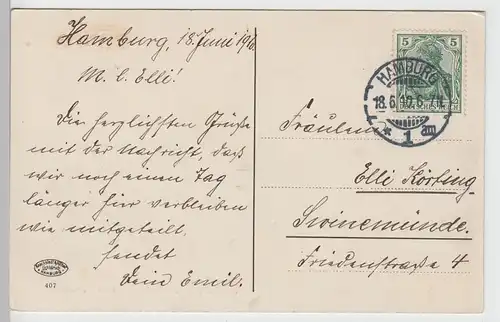 Hamburg, 18. Juni 1910.
M. l. Elli!
Die herzlichsten Grüße
mit der Nachricht, daß
wir noch einen Tag
länger hier verbleiben
wie mitgeteilt.
sendet
Dein Emil.
407
5 5
HAMBURG
18.6.10.6-7N.
* 1 am
Fräulein
Elli Körting
Swinemünde.
Friedenstraße 4